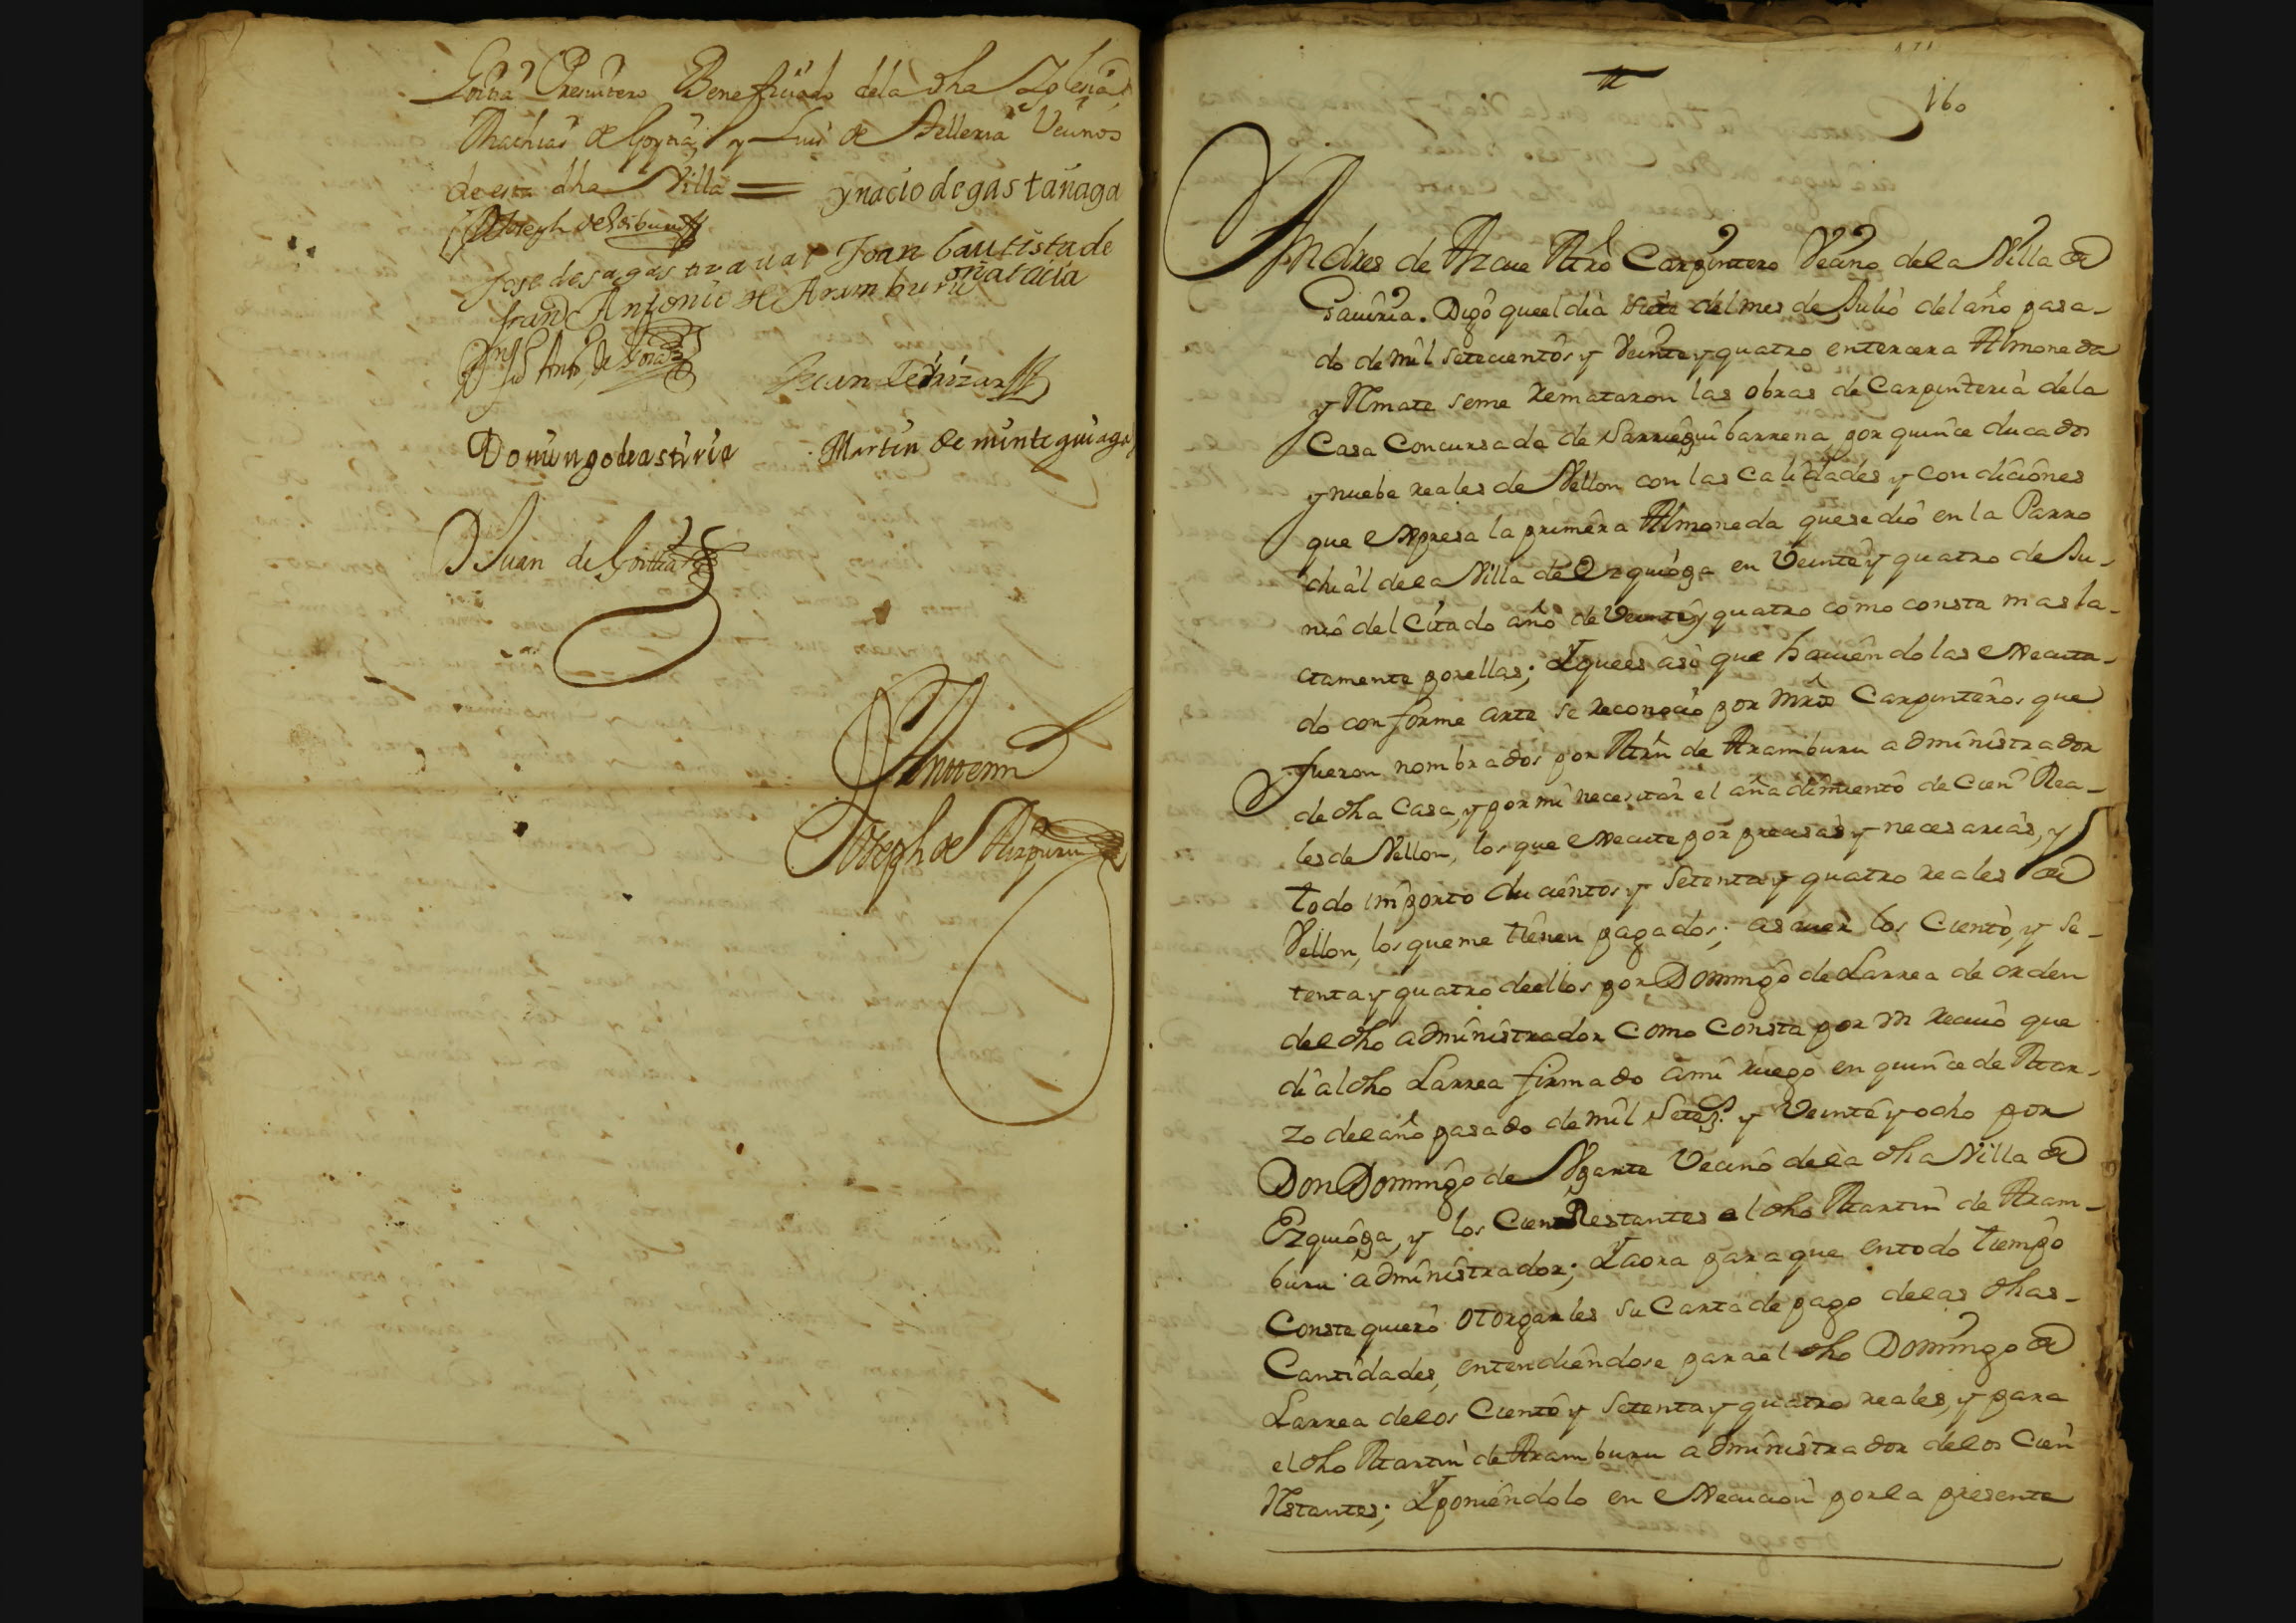 Presvitero Beneficiado dela dha Iglesia,
Mathias de Goyna, y Luis de Telleria Vecinos
de esta dha Villa = ynacio de gastañaga
Joseph de
Jose de sagastizaval Joan bautista de
oñatacia
franco Antonio de Aramburu
Juan de
Domingo de astiria Martin de minteguiaga
D Juan de Gorttia
Ante mi
Joseph de Aizpuru
160
Andres de Azcue Mro Carpintero Vecino dela Villa de
Gaviria. Digo que el dia siete del mes de Julio del año pasa-
do de mil setecientos y Veinte y quatro en tercera Almoneda
y Rmate seme Remataron las obras de Carpinteria dela
Casa Concursada de Sarriegui barrena, por quince ducados
y nuebe reales de Vellon con las calidades y condiciones
que expresa la primera Almoneda que se dio en la Parro
chial de la Villa de Ezquioga en Veinte y quatro de Ju-
nio del Citado año de Veinte y quatro como consta mas la-
ctamente por ellas; Y que es asi que haciendolas executa-
do conforme arte se reconocio por Mros Carpinteros que
fueron nombrados por Mrn de Aramburu administrador
de dha Casa, y por mi necesitar el añadimiento de Cien Rea-
les de Vellon, los que execute por precisas y necesarias, y
todo importo ducientos y setenta y quatro reales de
Vellon, los que me tienen pagados; asaver los Ciento, y se-
tenta y quatro de ellos por Domingo de Larrea de orden
del dho administrador como consta por un recivo que
di al dho Larrea firmado a mi ruego en quince de Mar-
zo del año pasado de mil setezs. y Veinte y ocho por
Don Domingo de Ugarte Vecino dela dha Villa de
Ezquioga, y los Cien Restantes el dho Martin de Aram-
buru administrador; Y aora para que en todo tiempo
Conste quiero otorgarles su Carta de pago delas dhas
Cantidades, entendiendose para el dho Domingo de
Larrea delos Ciento y setenta y quatro reales, y para
el dho Martin de Aramburu administrador delos Cien
Rstantes; Y poniendolo en execucion por la presente